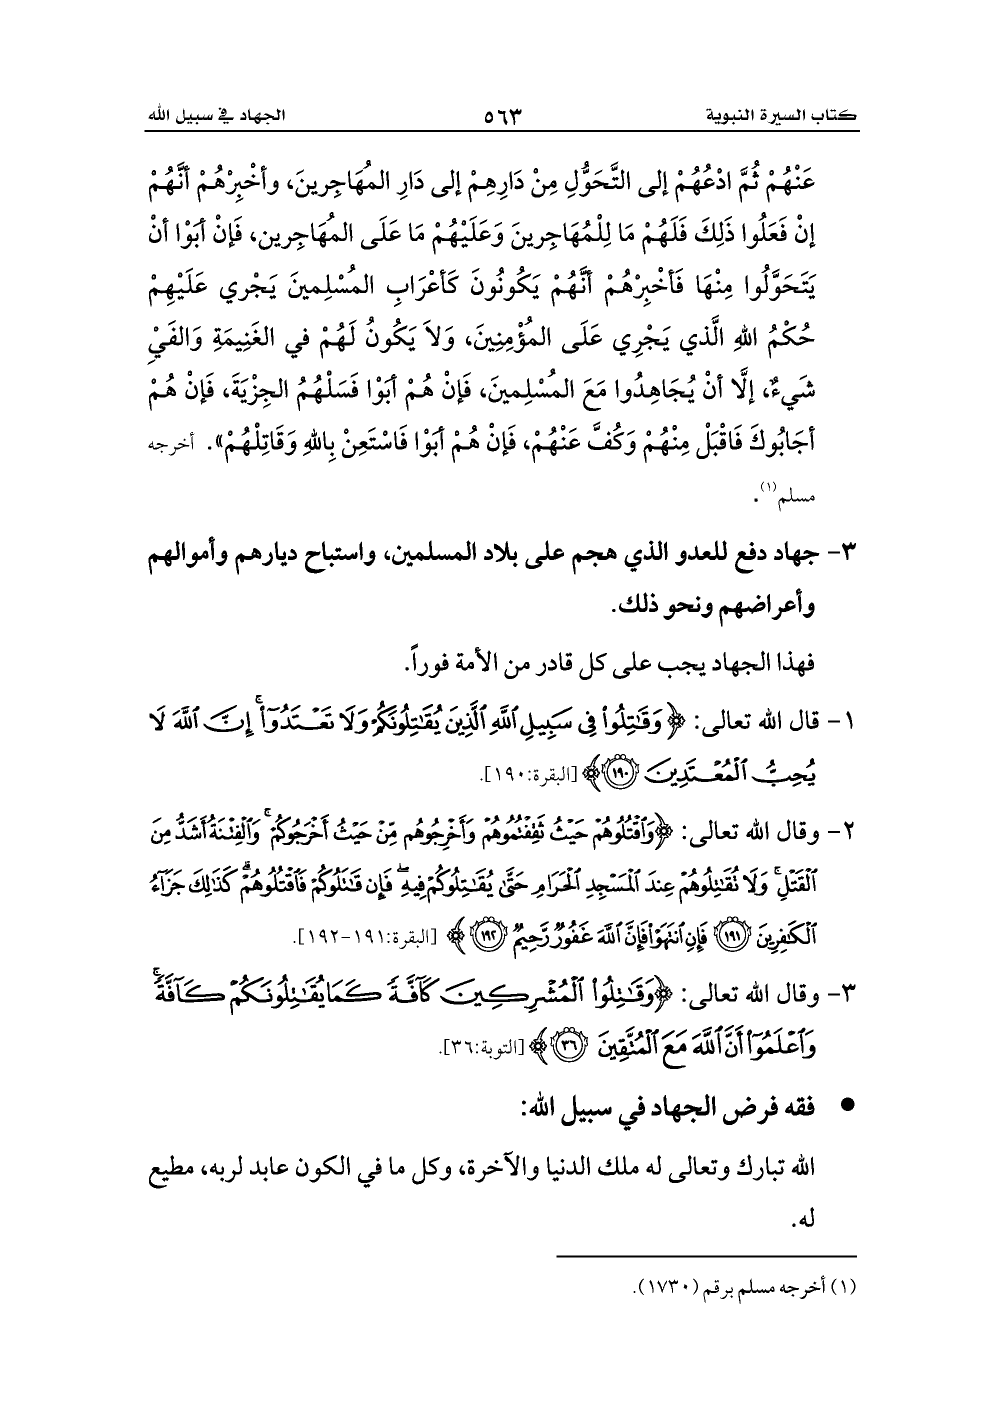 كتاب السيرة النبوية ٥٦٣ الجهاد في سبيل الله
عَنْهُمْ ثُمَّ ادْعُهُمْ إلى التَّحَوُّلِ مِنْ دَارِهِمْ إلى دَارِ المهَاجِرينَ، وأخْبِرْهُمْ أنَّهُمْ
إنْ فَعَلُوا ذَلِكَ فَلَهُمْ مَا لِلْمُهَاجِرينَ وَعَلَيْهُمْ مَا عَلَى المهَاجِرين، فَإنْ أبَوْا أنْ
يَتَحَوَّلُوا مِنْهَا فَأخْبِرْهُمْ أنَّهُمْ يَكُونُونَ كَأعْرَابِ المسْلِمينَ يَجْري عَلَيْهِمْ
حُكْمُ اللهِ الَّذي يَجْرِي عَلَى المؤْمِنِينَ، وَلاَ يَكُونُ لَهُمْ في الغَنِيمَةِ وَالفَيْءِ
شَيءٌ، إلَّا أنْ يُجَاهِدُوا مَعَ المسْلِمينَ، فَإنْ هُمْ أبَوْا فَسَلْهُمُ الجِزْيَةَ، فَإنْ هُمْ
أجَابُوكَ فَاقْبَلْ مِنْهُمْ وَكُفَّ عَنْهُمْ، فَإنْ هُمْ أبَوْا فَاسْتَعِنْ بِاللهِ وَقَاتِلْهُمْ». أخرجه
مسلم(١).
٣- جهاد دفع للعدو الذي هجم على بلاد المسلمين، واستباح ديارهم وأموالهم
وأعراضهم ونحو ذلك.
فهذا الجهاد يجب على كل قادر من الأمة فوراً.
١- قال الله تعالى: ﴿وَقَٰتِلُوا۟ فِى سَبِيلِ ٱللَّهِ ٱلَّذِينَ يُقَٰتِلُونَكُمْ وَلَا تَعْتَدُوٓا۟ ۚ إِنَّ ٱللَّهَ لَا
يُحِبُّ ٱلْمُعْتَدِينَ ١٩٠﴾ [البقرة:١٩٠].
٢- وقال الله تعالى: ﴿وَٱقْتُلُوهُمْ حَيْثُ ثَقِفْتُمُوهُمْ وَأَخْرِجُوهُم مِّنْ حَيْثُ أَخْرَجُوكُمْ ۚ وَٱلْفِتْنَةُ أَشَدُّ مِنَ
ٱلْقَتْلِ ۚ وَلَا تُقَٰتِلُوهُمْ عِندَ ٱلْمَسْجِدِ ٱلْحَرَامِ حَتَّىٰ يُقَٰتِلُوكُمْ فِيهِ ۖ فَإِن قَٰتَلُوكُمْ فَٱقْتُلُوهُمْ ۗ كَذَٰلِكَ جَزَآءُ
ٱلْكَٰفِرِينَ ١٩١ فَإِنِ ٱنتَهَوْا۟ فَإِنَّ ٱللَّهَ غَفُورٌ رَّحِيمٌ ١٩٢﴾ [البقرة:١٩١-١٩٢].
٣- وقال الله تعالى: ﴿وَقَٰتِلُوا۟ ٱلْمُشْرِكِينَ كَآفَّةً كَمَا يُقَٰتِلُونَكُمْ كَآفَّةً ۚ
وَٱعْلَمُوٓا۟ أَنَّ ٱللَّهَ مَعَ ٱلْمُتَّقِينَ ٣٦﴾ [التوبة:٣٦].
● فقه فرض الجهاد في سبيل الله:
الله تبارك وتعالى له ملك الدنيا والآخرة، وكل ما في الكون عابد لربه، مطيع
له.
(١) أخرجه مسلم برقم (١٧٣٠).